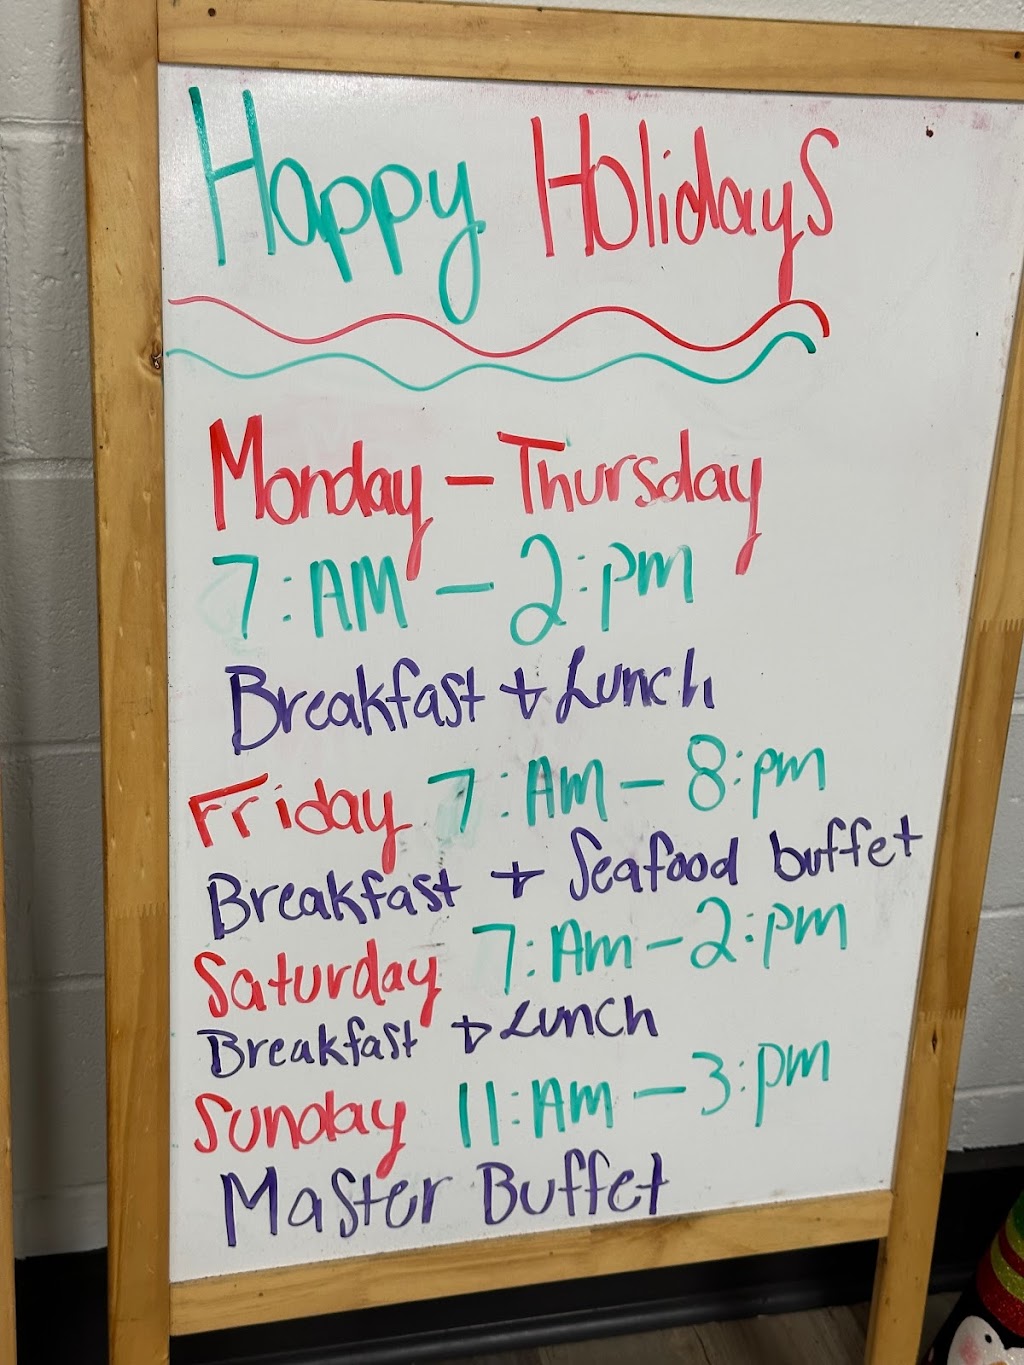 Happy Holidays
Monday - Thursday
7:AM - 2:pm
Breakfast + Lunch
Friday 7:AM - 8:pm
Breakfast + Seafood buffet
Saturday 7:AM - 2:pm
Breakfast + Lunch
Sunday 11:AM - 3:pm
Master Buffet